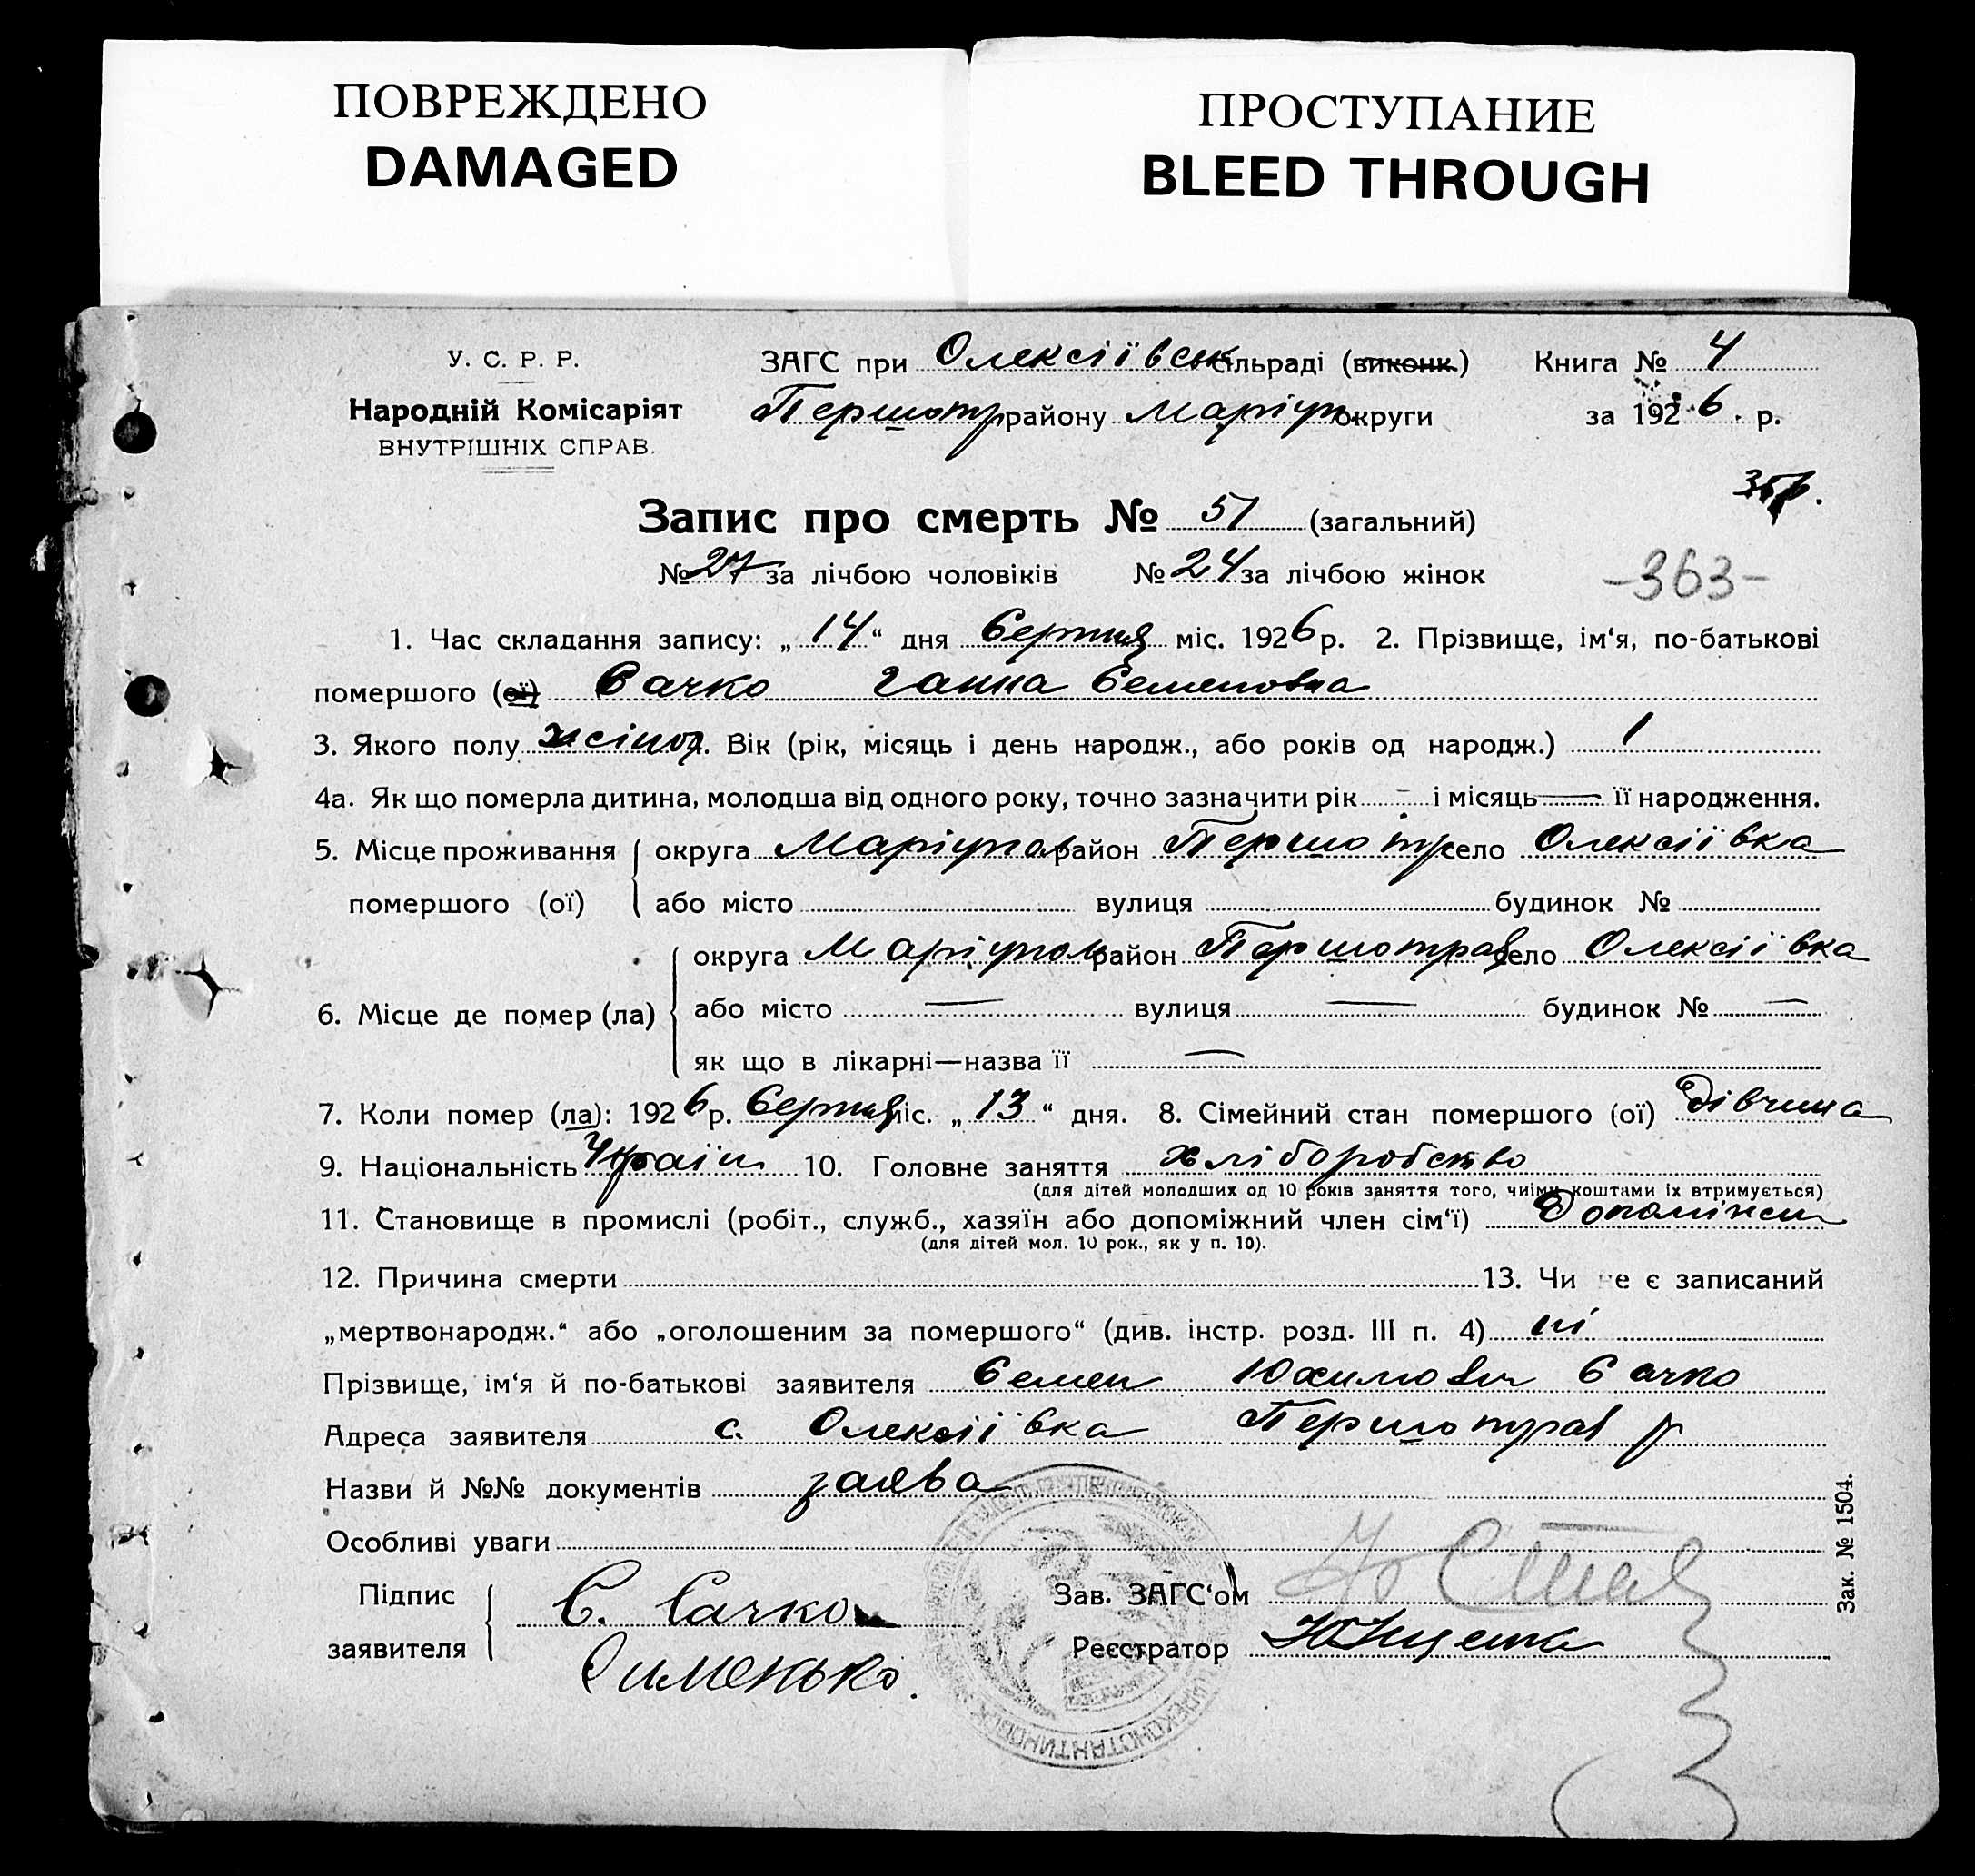 ПОВРЕЖДЕНО
DAMAGED
ПРОСТУПАНИЕ
BLEED THROUGH
У. С. Р. Р.
Народній Комісаріят
ВНУТРІШНІХ СПРАВ.
ЗАГС при Олексіївськ сільраді (виконк.) Книга № 4
Першотр району Маріуп. округи за 1926. р.
Запис про смерть № 51 (загальний)
№ 27 за лічбою чоловіків № 24 за лічбою жінок
-363-
1. Час складання запису: „14“ дня Серпня міс. 1926 р. 2. Прізвище, ім‘я, по-батькові
помершого (ої) Сачко Ганна Семеновна
3. Якого полу жіноч. Вік (рік, місяць і день народж., або років од народж.) 1
4а. Як що померла дитина, молодша від одного року, точно зазначити рік — і місяць — її народження.
5. Місце проживання округа Маріупол район Першотр село Олексіївка
помершого (ої) або місто вулиця будинок №
округа Маріупол район Першотрав село Олексіївка
6. Місце де помер (ла) або місто — вулиця — будинок № —
як що в лікарні—назва її —
7. Коли помер (ла): 1926 р. Серпня міс. „13“ дня. 8. Сімейний стан помершого (ої) Дівчина
9. Національність Украін 10. Головне заняття хліборобство
(для дітей молодших од 10 років заняття того, чиїми коштами їх втримується)
11. Становище в промислі (робіт., служб., хазяїн або допоміжний член сім‘ї) Допоміжн
(для дітей мол. 10 рок., як у п. 10).
12. Причина смерти 13. Чи не є записаний
„мертвонародж.“ або „оголошеним за помершого“ (див. інстр. розд. III п. 4) ні
Прізвище, ім‘я й по-батькові заявителя Семен Юхимович Сачко
Адреса заявителя с. Олексіївка Першотрав р
Назви й №№ документів заява
Особливі уваги
Підпис С. Сачко Зав. ЗАГС‘ом
заявителя Сименько. Реєстратор
Зак. № 1504.